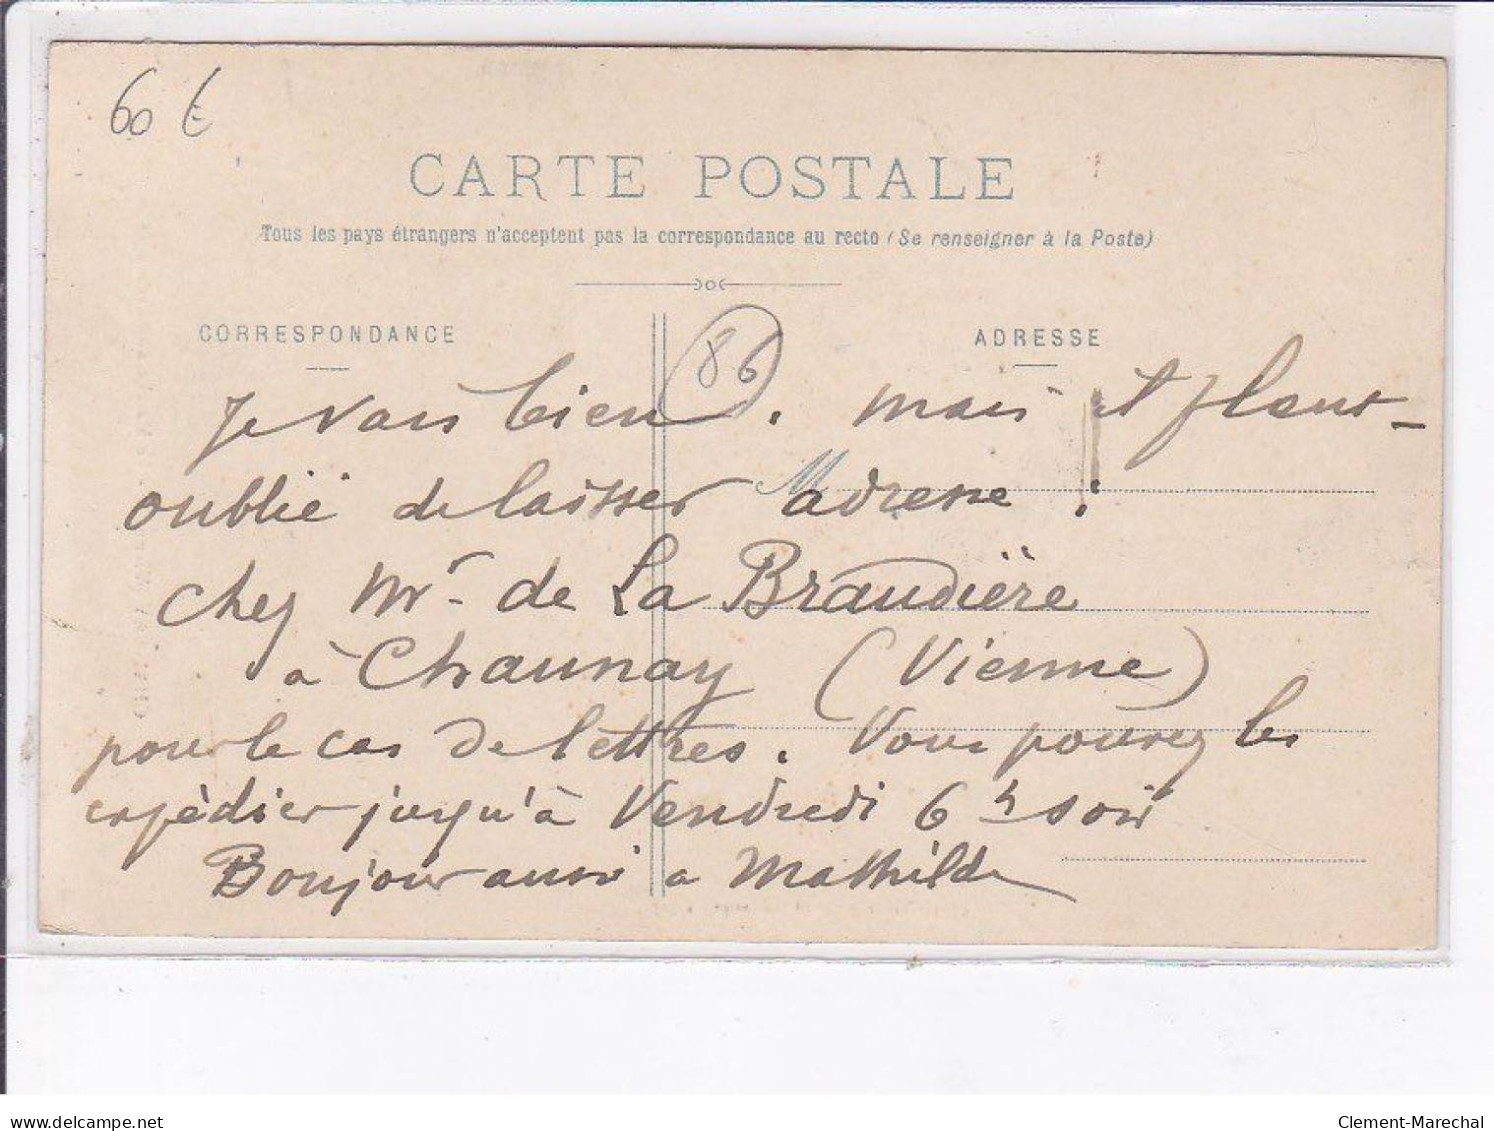 60 €
CARTE POSTALE
Tous les pays étrangers n'acceptent pas la correspondance au recto (Se renseigner à la Poste)
CORRESPONDANCE
ADRESSE
86
Je vais bien. mais il pleut -
oublié de laisser adresse !
chez Mr. de La Braudière
à Chaunay (Vienne)
pour le cas de lettres. Vous pouvez les
expédier jusqu'à Vendredi 6 h soir
Bonjour aussi a Mathilde
delcampe.net
Clement-Marechal